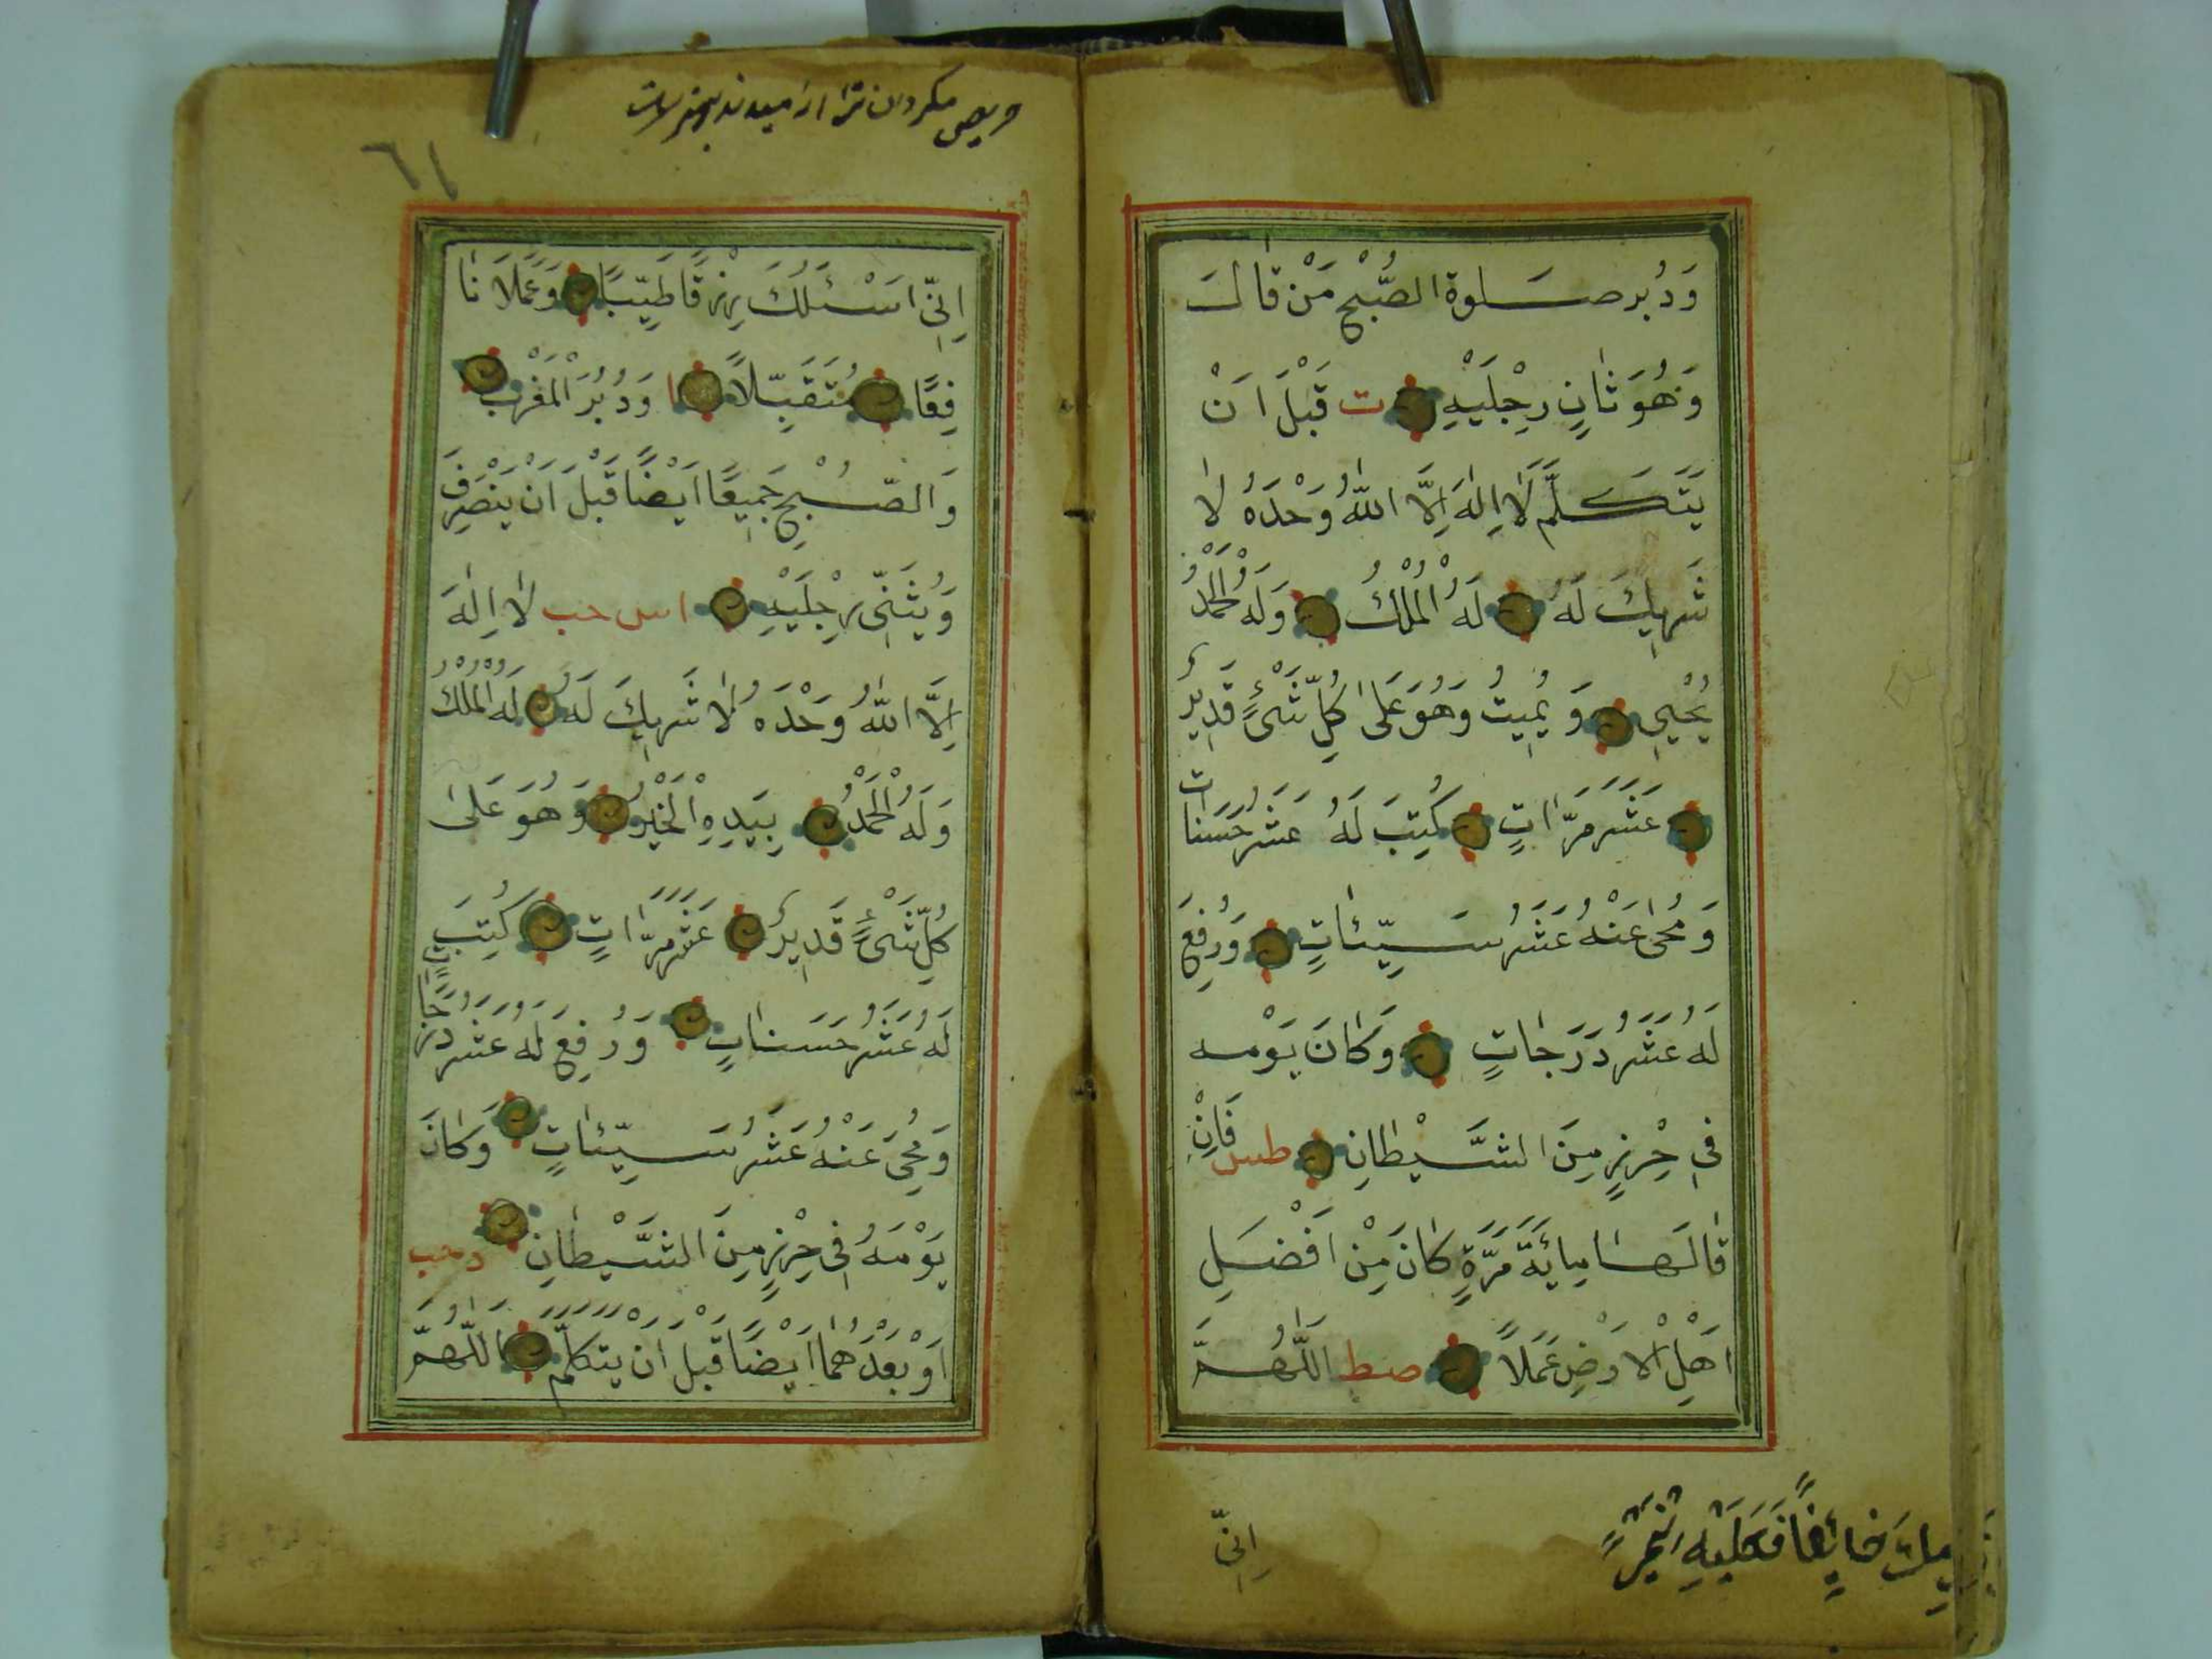 وَدُبُرِ صَلوةِ الصُّبْحِ مَنْ قَالَ
وَهُوَ ثَانٍ رِجْلَيْهِ ت قَبْلَ اَنْ
يَتَكَلَّمَ لَا اِلٰهَ اِلَّا اللّٰهُ وَحْدَهُ لَا
شَرِيكَ لَهُ لَهُ الْمُلْكُ وَلَهُ الْحَمْدُ
يُحْيِي وَيُمِيتُ وَهُوَ عَلٰى كُلِّ شَيْءٍ قَدِيرٌ
عَشَرَ مَرَّاتٍ كُتِبَ لَهُ عَشَرُ حَسَنَاتٍ
وَمُحِىَ عَنْهُ عَشَرُ سَيِّئَاتٍ وَرُفِعَ
لَهُ عَشَرُ دَرَجَاتٍ وَكَانَ يَوْمه
فِي حِرْزٍ مِنَ الشَّيْطَانِ طس فَاِنْ
قَالَهَا مِائَةَ مَرَّةٍ كَانَ مِنْ اَفْضَلِ
اَهْلِ الْاَرْضِ عَمَلاً صط اَللّٰهُمَّ
اِنِّي
اِنِّي اَسْئَلُكَ رِزْقًا طَيِّبًا وَعَمَلاً نَا
فِعًا مُتَقَبَّلاً وَدُبُرَ الْمَغْرِبِ
وَالصُّبْحِ جَمِيعًا اَيْضًا قَبْلَ اَنْ يَنْصَرِفَ
وَيُثَنِّي رِجْلَيْهِ اس حب لَا اِلٰهَ
اِلَّا اللّٰهُ وَحْدَهُ لَا شَرِيكَ لَهُ لَهُ الْمُلْكُ
وَلَهُ الْحَمْدُ بِيَدِهِ الْخَيْرُ وَهُوَ عَلٰى
كُلِّ شَيْءٍ قَدِيرٌ عَشَرَ مَرَّاتٍ كُتِبَ
لَهُ عَشَرُ حَسَنَاتٍ وَرُفِعَ لَهُ عَشَرُ دَرَجَاتٍ
وَمُحِيَ عَنْهُ عَشَرُ سَيِّئَاتٍ وَكَانَ
يَوْمَهُ فِي حِرْزٍ مِنَ الشَّيْطَانِ د حب
اَوْ بَعْدَهُمَا اَيْضًا قَبْلَ اَنْ يَتَكَلَّمَ اَللّٰهُمَّ